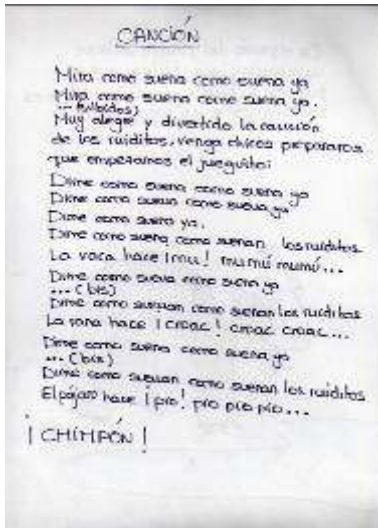 CANCIÓN
Mira como suena como suena ya
Mira como suena como suena ya.
... (silbidos)
Muy alegre y divertida la canción
de los ruiditos, venga chicos prepararos
que empezamos el jueguito:
Dime como suena como suena ya
Dime como suena como suena ya
Dime como suena ya.
Dime como suena como suenan los ruiditos
La vaca hace ¡mu! mumú mumú...
Dime como suena como suena ya
... (bis)
Dime como suenan como suenan los ruiditos
La rana hace ¡croac! croac croac...
Dime como suena como suena ya
... (bis)
Dime como suenan como suenan los ruiditos
El pájaro hace ¡pío! pío pío pío...
¡CHIMPÓN!